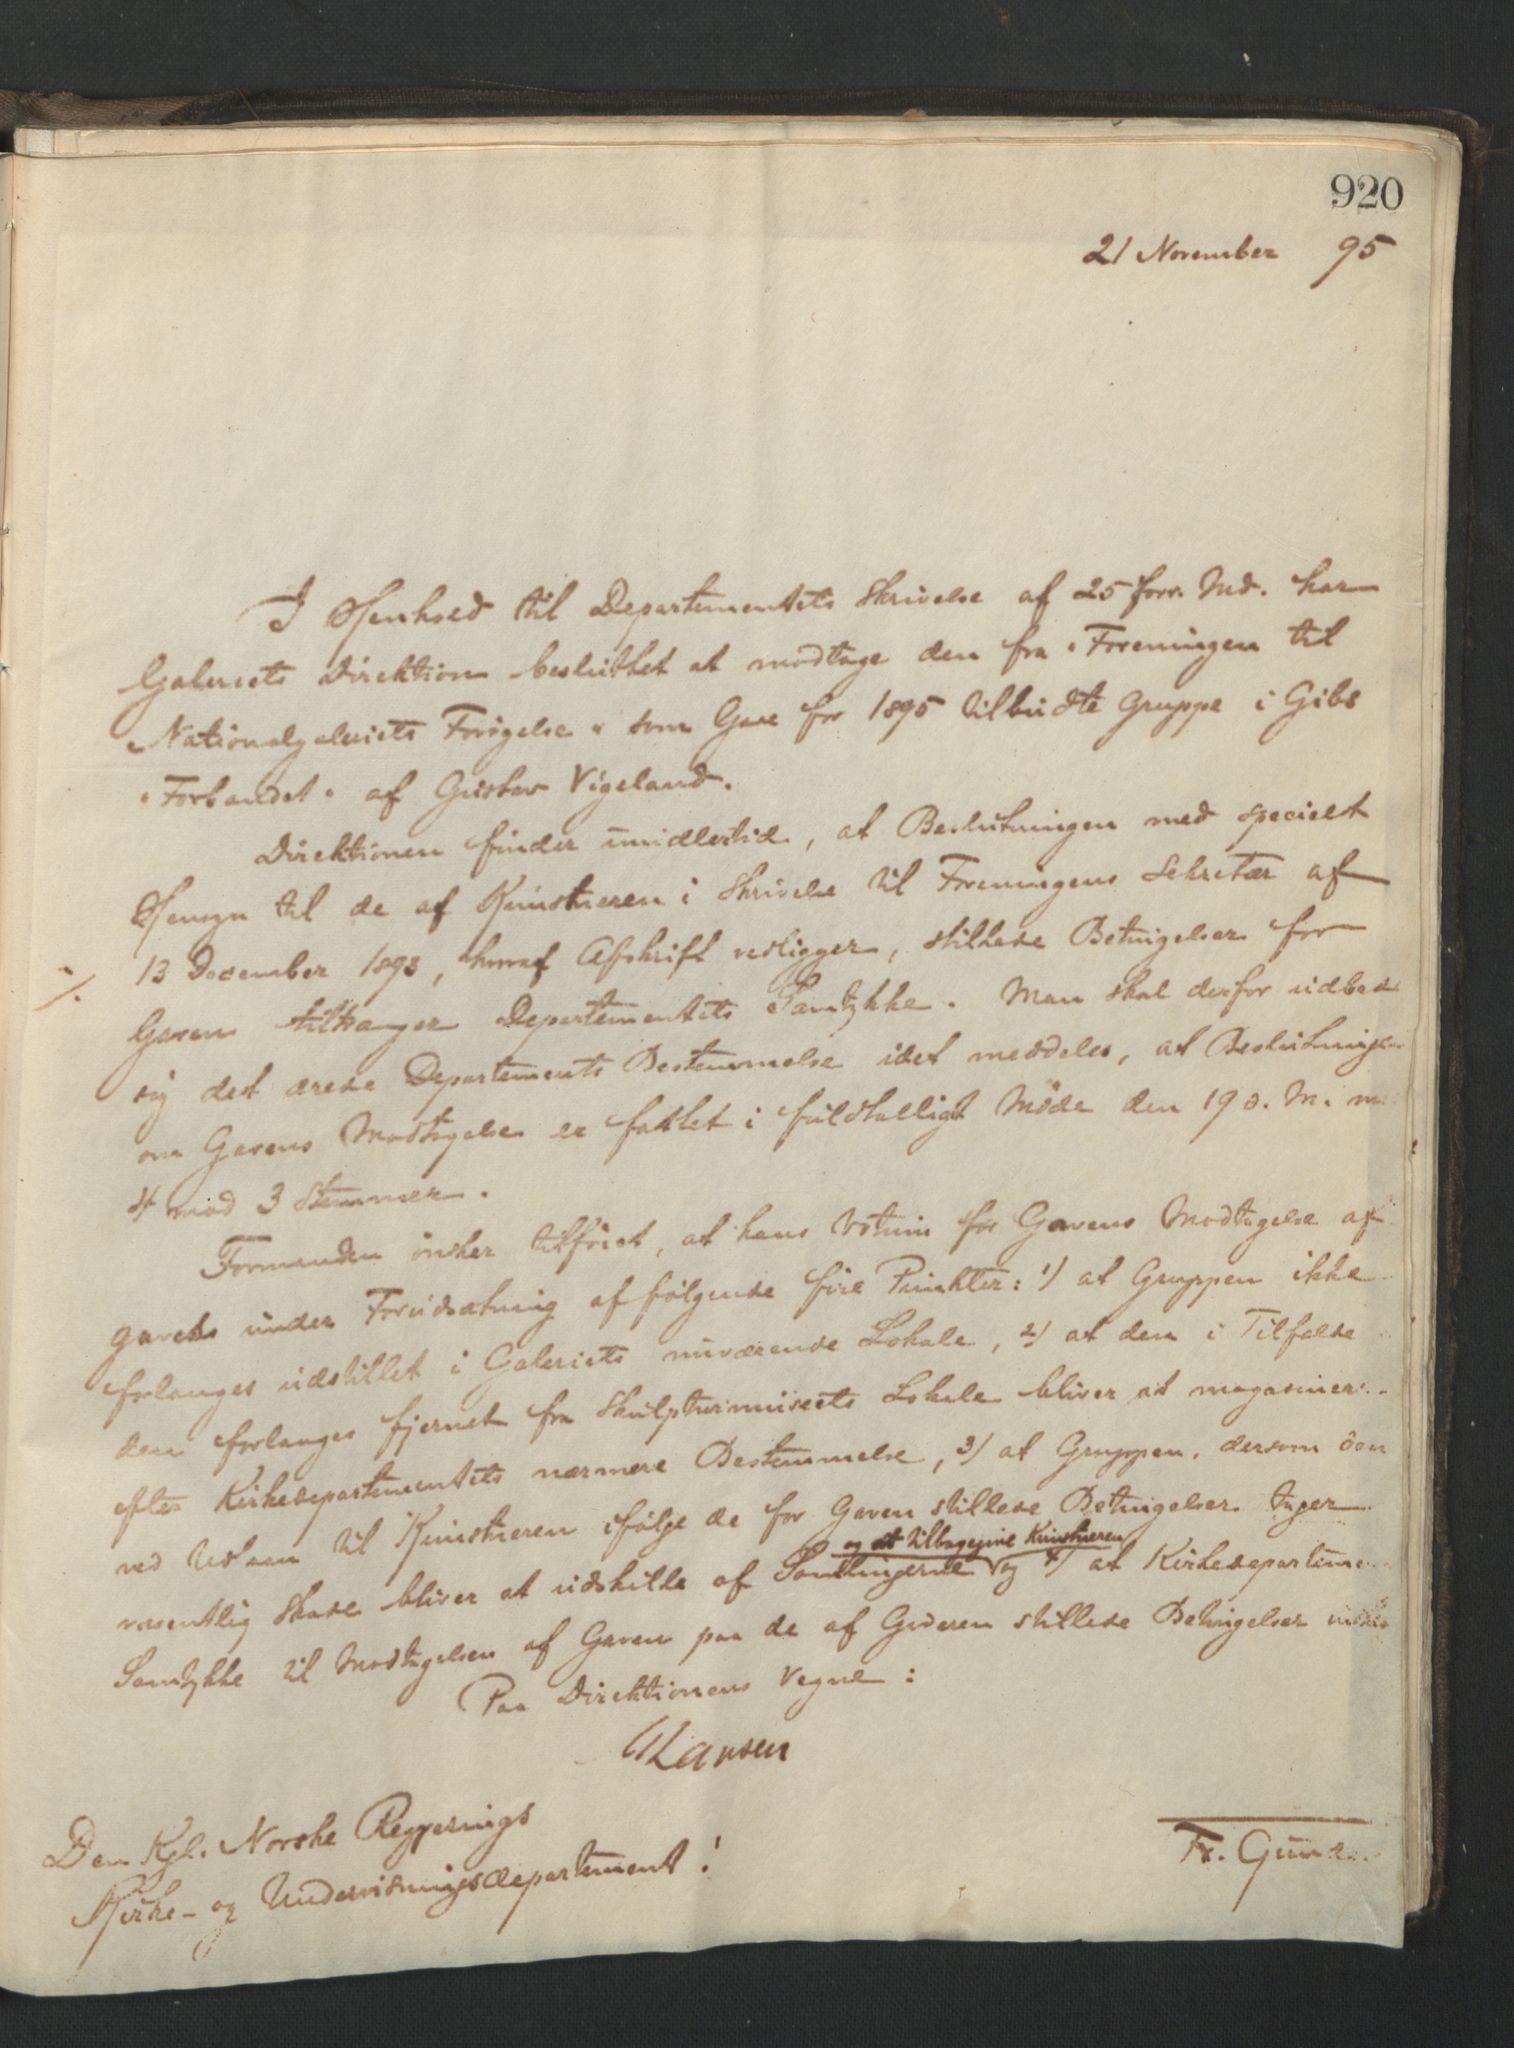 920
21 November 95
I Henhold til Departementets Skrivelse af 25 forr. Md. har
Galeriets Direktion besluttet at modtage den fra "Foreningen til
Nationalgaleriets Forøgelse" som Gave for 1895 tilbudte Gruppe i Gibs
"Forbandet" af Gustav Vigeland.
Direktionen finder imidlertid, at Beslutningen med specielt
Hensyn til de af Kunstneren i Skrivelse til Foreningens Sekretær af
./. 13 December 1893, hvoraf Afskrift vedligger, stillede Betingelser for
Gaven tiltrænger Departementets Samtykke. Man skal derfor udbede
sig det ærede Departements Bestemmelse idet meddeles, at Beslutningen
om Gavens Modtagelse er fattet i fuldtalligt Møde den 19 d. M. m
4 mod 3 Stemmer.
Formanden ønsker tilføiet, at hans Votum for Gavens Modtagelse af
gaves under Forudsætning af følgende fire Punkter: 1) at Gruppen ikke
forlanges udstillet i Galeriets nuværende Lokale, 2) at den i Tilfælde
den forlanges fjernet fra Skulpturmuseets Lokale bliver at magasiner
efter Kirkedepartementets nærmere Bestemmelse, 3) at Gruppen, dersom den
ved Udlaan til Kunstneren ifølge de for Gaven stillede Betingelser tager
og at tilbagegive Kunstneren
væsentlig Skade bliver at udskille af Samlingerne og 4) at Kirkedepartemen
Samtykke til Modtagelsen af Gaven paa de af Giveren stillede Betingelser
Paa Direktionens Vegne:
Larsen
Den Kgl. Norske Regjerings
Kirke- og Undervisningsdepartement!
Fr. Gund